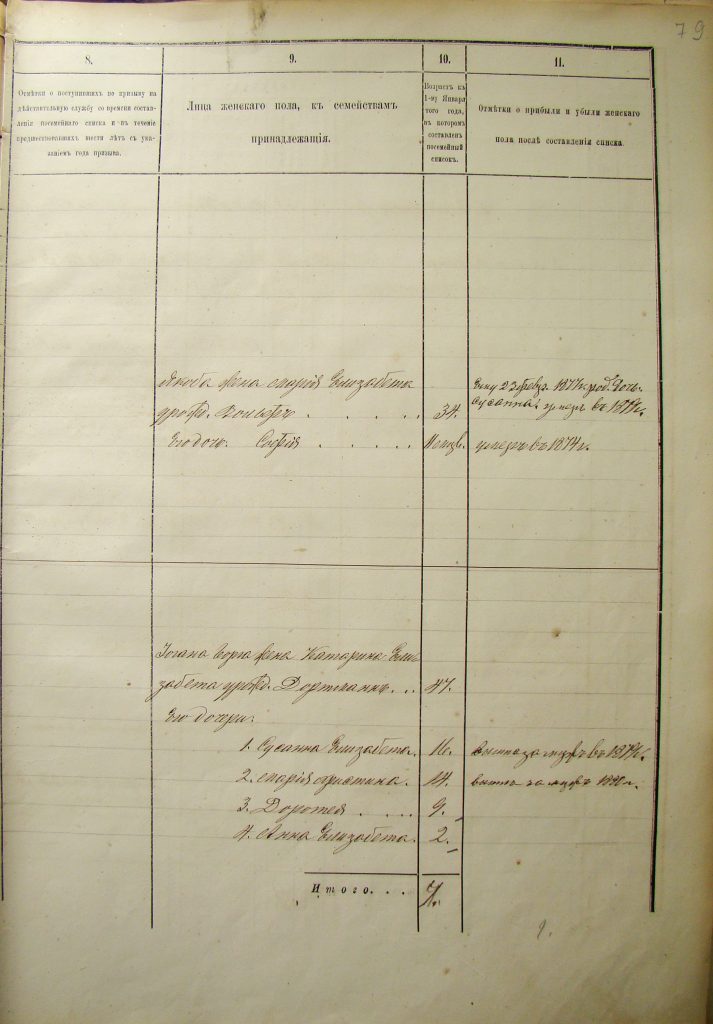 79
8.
9.
10.
11.
Отмѣтки о поступившихъ по призыву на
дѣйствительную службу со времени состав-
ленія посемейнаго списка и въ теченіе
предшествовавшихъ шести лѣтъ съ ука-
заніемъ года призыва.
Лица женскаго пола, къ семействамъ
принадлежащія.
Возрастъ къ
1-му Января
того года,
въ которомъ
составленъ
посемейный
списокъ.
Отмѣтки о прибыли и убыли женскаго
пола послѣ составленія списка.
Якоба жена Марія Елизабета
урожд. . . . . . 34.
23 февр. 187 род. дочь
Сусанна умер. въ 187 г.
Его дочь София . . . . . 11 мѣс.
умерла въ 1874 г.
Іогана Георга жена Катарина Ели-
забета урожд. Дортманнъ . . 47.
Его дочери:
1. Сусанна Елизабета. 16. вышла замужъ въ 187 г.
2. Марія Христина. 14. замужъ 18
3. Доротея . . . . 9.
4. Анна Елизабета. 2.
Итого. . . 7.